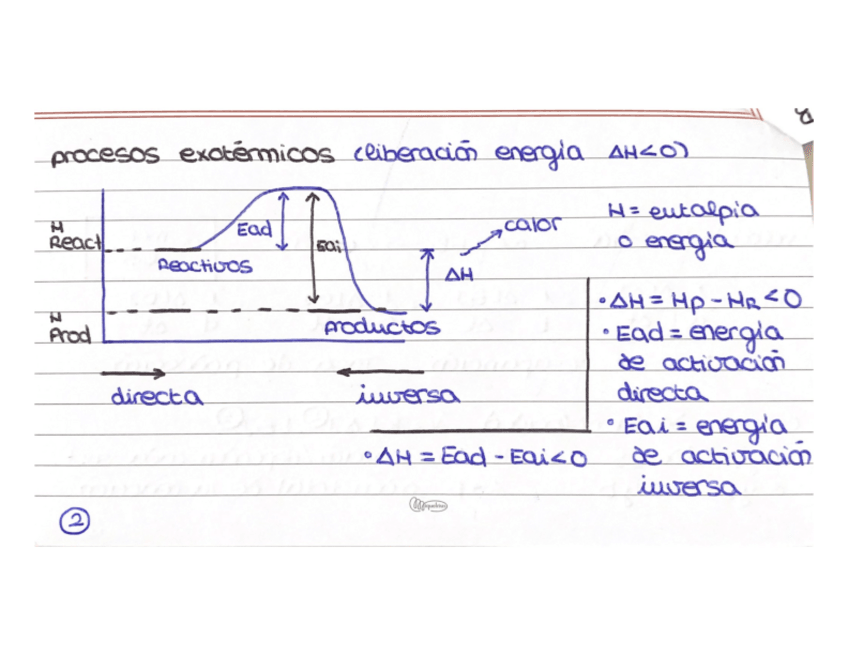 procesos exotérmicos (liberación energía ΔH<0)
H React
Ead
Eai
Reactivos
calor
ΔH
H = eutalpía
o energía
H Prod
productos
directa
inversa
• ΔH = Hp - HR < 0
• Ead = energía
de activación
directa
• Eai = energía
de activación
inversa
• ΔH = Ead - Eai < 0
2